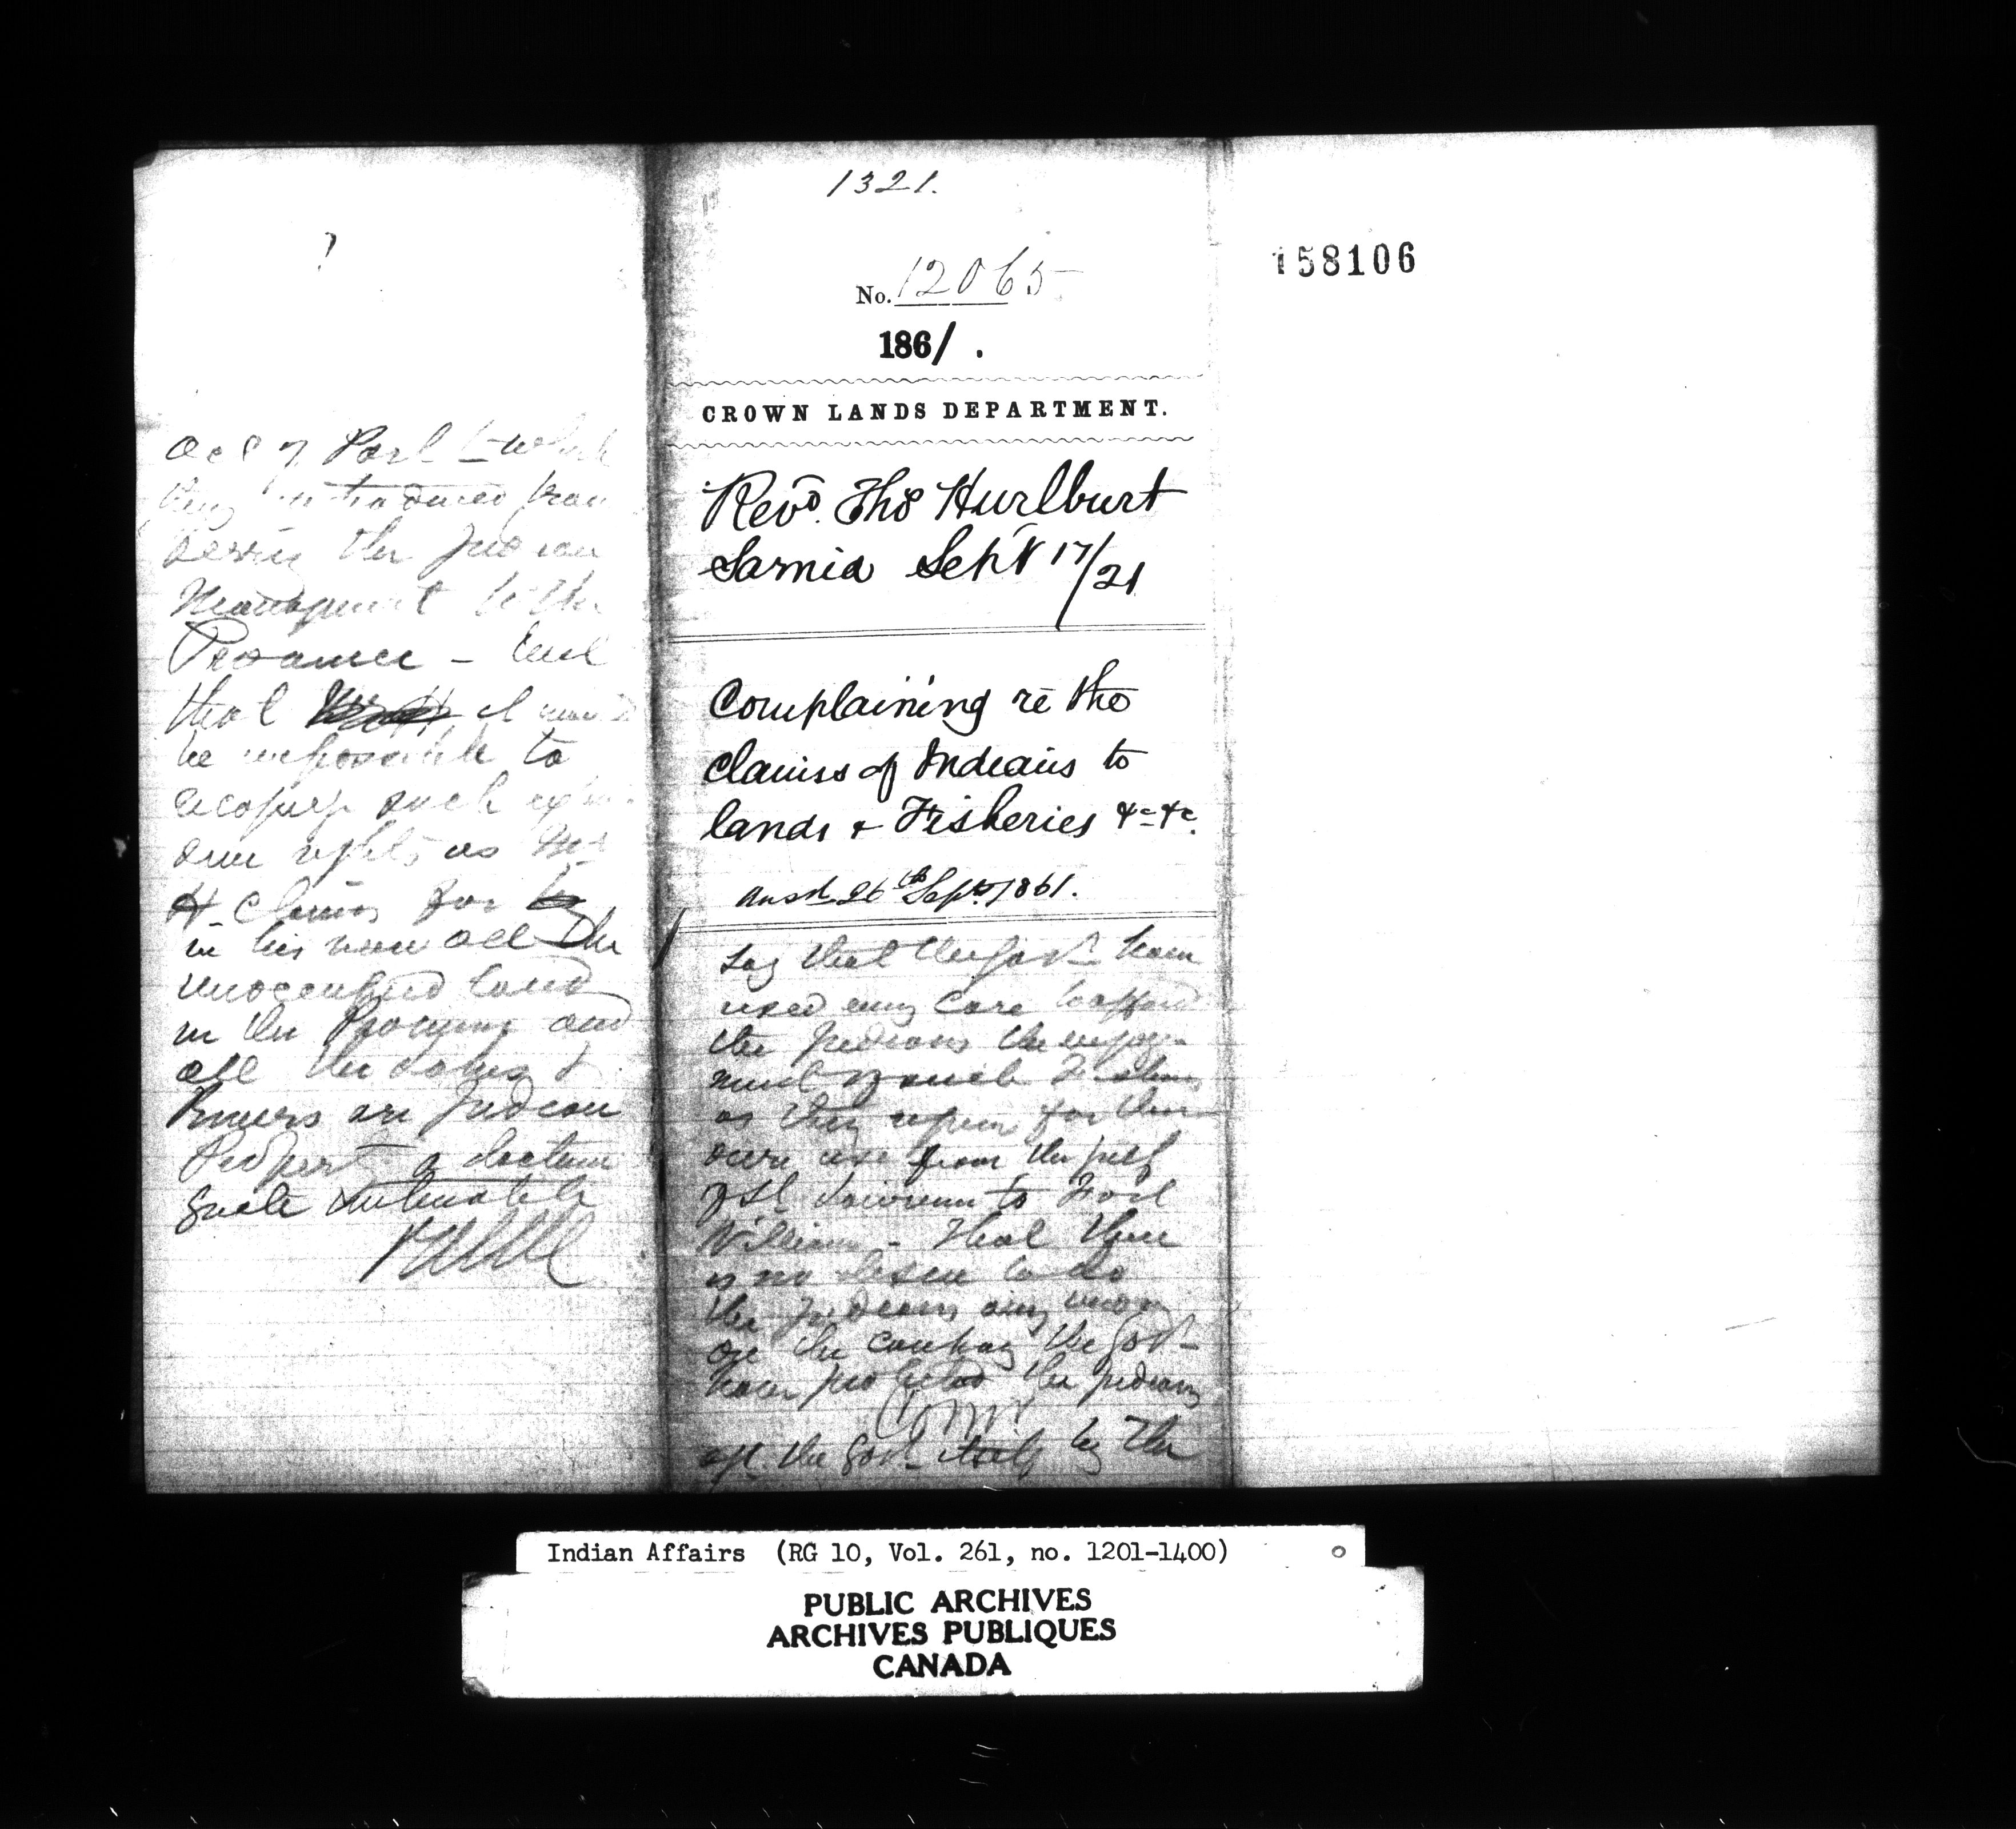 1321.
No. 12065
186/.
158106
CROWN LANDS DEPARTMENT.
Revd. Thos Hurlburt
Sarnia Sept 17/21
Complaining re the
claims of Indians to
lands & Fisheries &c &c.
ansd 26th Sept. 1861.
Say that the Govt have
used every care to afford
the Indians the enjoy-
ment of such Fishing
as they require for their
own use from the gulf
of St to Fort
William - That there
is no desire to do
the Indians any wrong
on the contrary the Govt
have protected the Indians
agt. the Govt itself by the
Act of Parlt which
they introduced
the Indian
Management to the
Province - And
that it would
be impossible to
recognize such
rights as Mr
H. claims for
in his view all the
unoccupied land
in the Province and
all the Lakes &
Rivers are Indian
Property a doctrine
quite untenable
Indian Affairs (RG 10, Vol. 261, no. 1201-1400)
PUBLIC ARCHIVES
ARCHIVES PUBLIQUES
CANADA